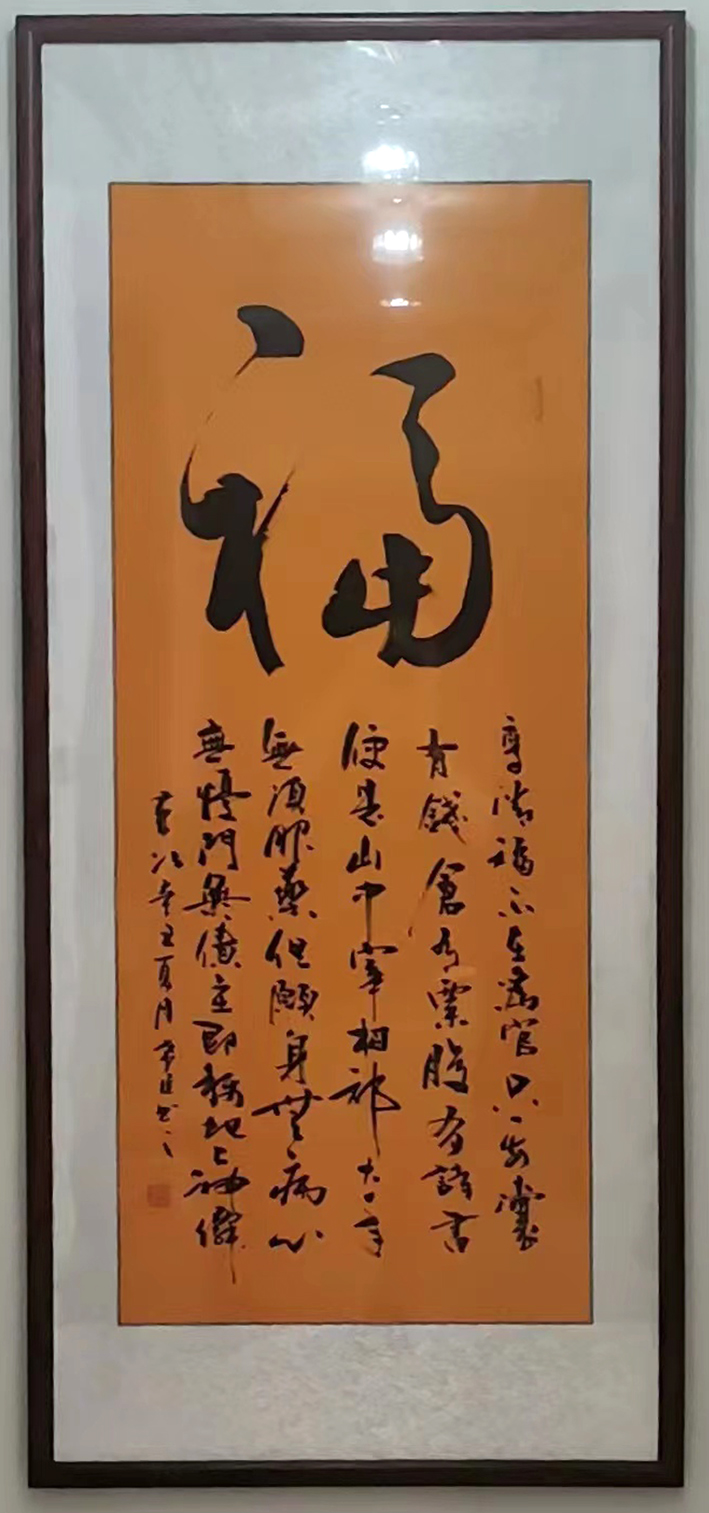 福
享清福不在為官只要囊
有錢倉有粟腹有詩書
便是山中宰相祈大年
無須服藥但願身無病心
無憂門無債主即稱地上神僊
歲次辛丑夏月